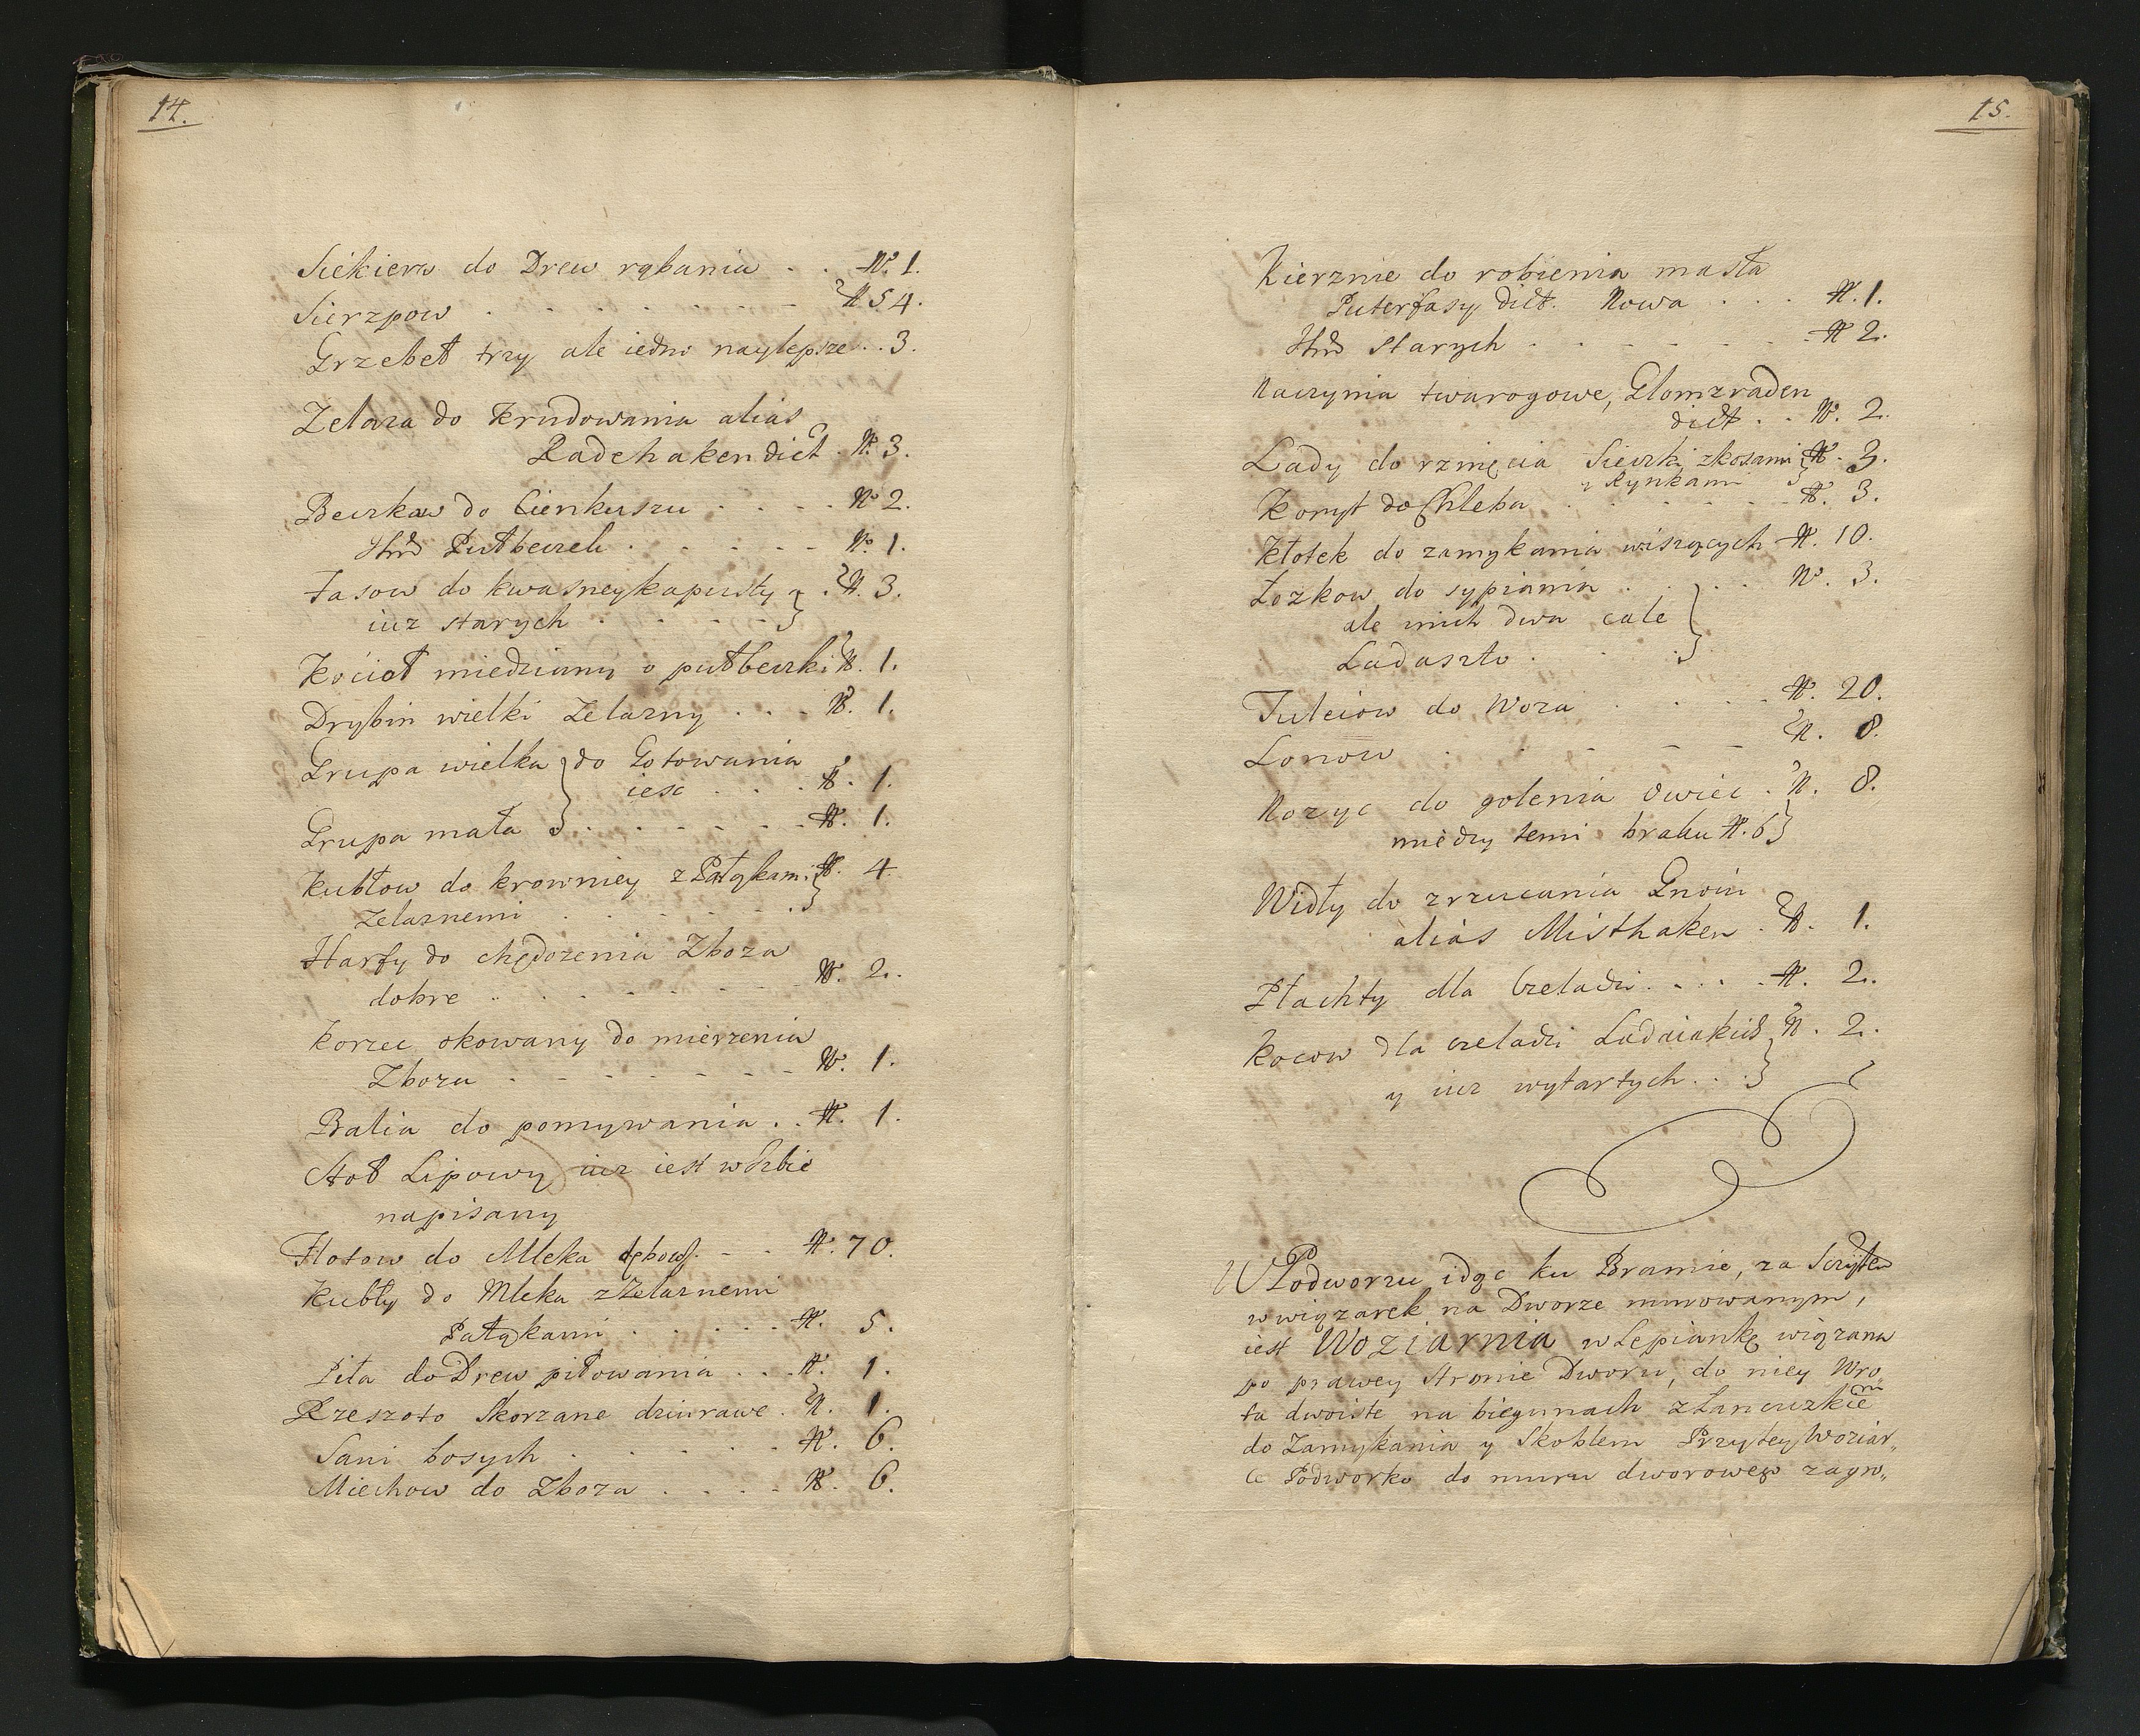 14.
Siekiera do Drew rąbania . . N. 1.
Sierzpow . . . . . . . N 54.
Grzebeł trzy ale iedno naylepsze . . 3.
Zelaza do Krudowania alias
Radehaken dict . N. 3.
Beczkaw do Cienkuszu . . . . N 2.
Putbeczek . . . . . . N. 1.
Fasow do kwasney kapusty } . N. 3.
iuz starych . . . . }
Kocioł miedziany o putbeczki N. 1.
Drybin wielki Zelazny . . . N. 1.
Grupa wielka } do Gotowania
iesc . . . N. 1.
Grupa mała } . . . . . . N. 1.
Kubłow do krowniey z Pałąkami } N. 4.
Zelaznemi . . . . . . }
Harfy do chędozenia Zboza
dobre . . . . . . . N. 2.
Korzec okowany do mierzenia
Zboza . . . . . . . . N. 1.
Balia do pomywania . . N. 1.
Stoł Lipowy iuz iest w Izbie
napisany
Flotow do Mleka dębow . . . N. 70.
Kubły do Mleka z Zelaznemi
Pałąkami . . . . . N. 5.
Piła do Drew piłowania . . . N. 1.
Rzeszoto Skorzane dziurawe . N. 1.
Sani bosych . . . . . . N. 6.
Miechow do Zboza . . . . N. 6.
15.
Kierznie do robienia masła
Puterfasy dict. Nowa . . . N. 1.
Starych . . . . . . . N 2.
Naczynia twarogowe, Glomzraden
dict . . N. 2.
Lady do rznięcia Sieczki z kosami } N. 3.
y Rynkami }
Koryt do Chleba . . . . . N. 3.
Kłotek do zamykania wiszących N. 10.
Łozkow do sypiania . . . . N. 3.
ale nich dwa cale }
Ladaszto . . . . }
Tuleiow do Woza . . . . N. 20.
Lonow . . . . . N. 8.
Nozyc do golenia Owiec . N. 8.
między temi braku N. 6 }
Widły do zrzucania Gnoiu
alias Misthaken . N. 1.
Płachty dla Czeladzi . . . . N. 2.
Kocow dla czeladzi Ladaiakich } N. 2.
y iuz wytartych . . }
W Podworzu idąc ku Bramie, za
w wiązarek na Dworze murowanym,
iest Woziarnia w Lepiankę wiązana
po prawey stronie Dworu, do niey Wro„
ta dwoiste na biegunach z Łancuzkiem
do Zamykania y Skoblem Przytey Woziar„
Podworko do muru dworowego zagro„